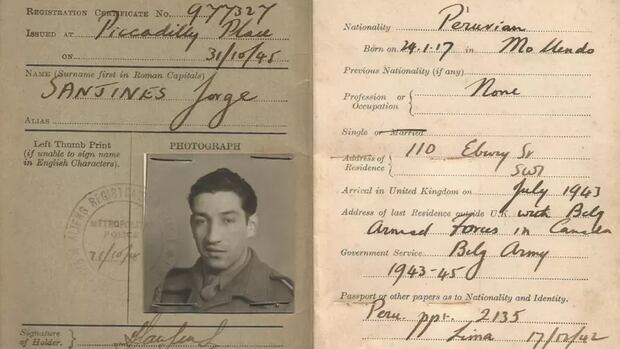 REGISTRATION CERTIFICATE No. 977327
ISSUED AT Piccadilly Place
ON 31/10/45
NAME (Surname first in Roman Capitals)
SANJINES Jorge
ALIAS
Left Thumb Print
(if unable to sign name
in English Characters).
PHOTOGRAPH
ALIENS REGISTRATION
METROPOLITAN
POLICE
Signature
of Holder.
Nationality Peruvian
Born on 24.1.17 in Mollendo
Previous Nationality (if any)
Profession or
Occupation
None
Single or Married
Address of
Residence
110 Ebury St
SW1
Arrival in United Kingdom on July 1943
Address of last Residence outside U.K. with Belg
Armed Forces in Canada
Government Service Belg Army
1943-45
Passport or other papers as to Nationality and Identity.
Peru. ppt. 2135
Lima 17/12/42